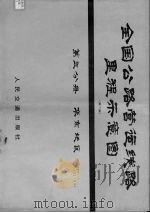 全国公路营运线路
里程示意图
第三分册 华东地区
人民交通出版社